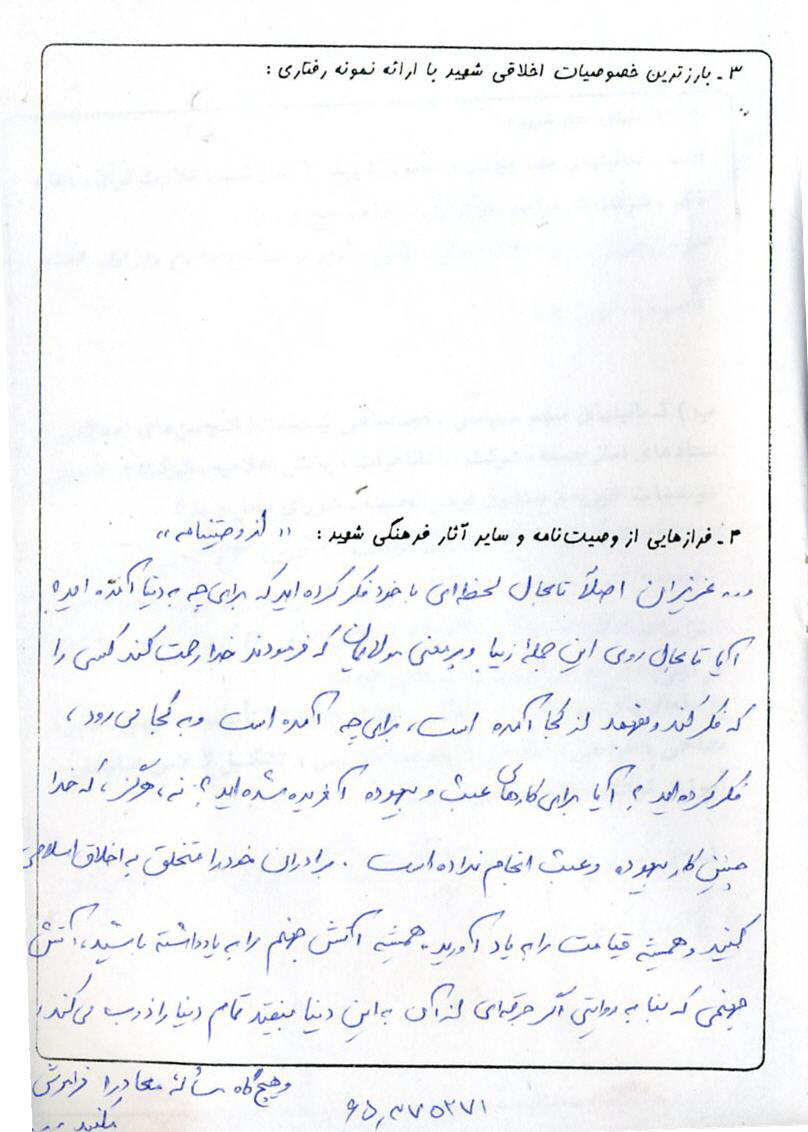 ۳ـ بارزترین خصوصیات اخلاقی شهید با ارائه نمونه رفتاری :
۴ـ فرازهایی از وصیت‌نامه و سایر آثار فرهنگی شهید : «از وصیتنامه»
... عزیزان اصلاً تا بحال لحظه‌ای با خود فکر کرده اید که برای چه به دنیا آمده اید؟
آیا تا بحال روی این جمله زیبا و پر معنی مولایمان که فرمودند خدا رحمت کند کسی را
که فکر کند و بفهمد از کجا آمده است، برای چه آمده است و به کجا می رود،
فکر کرده اید؟ آیا برای کارهای عبث و بیهوده آفریده شده اید؟ نه، هرگز، که خدا
چنین کار بیهوده و عبث انجام نداده است . برادران خود را متخلق به اخلاق اسلامی
کنید و همیشه قیامت را به یاد آورید. همیشه آتش جهنم را به یاد داشته باشید، آتش
جهنمی که بنا به روایتی اگر جرقه‌ای از آن به این دنیا بیفتد تمام دنیا را ذوب می کند،
و هیچ گاه مسألهٔ معاد را فراموش
نکنید ...